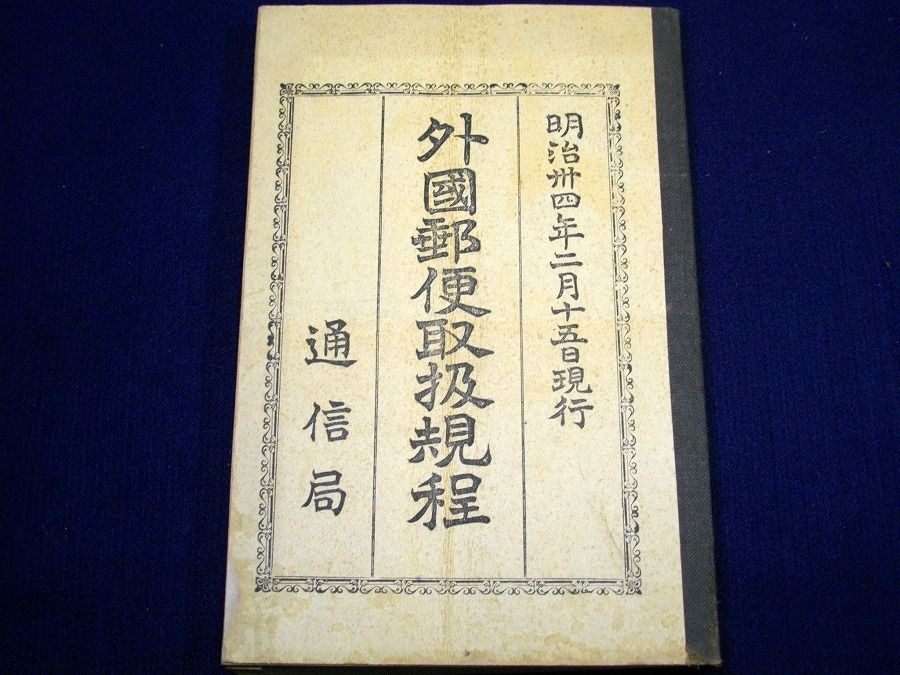 明治卅四年二月十五日現行
外國郵便取扱規程
通信局